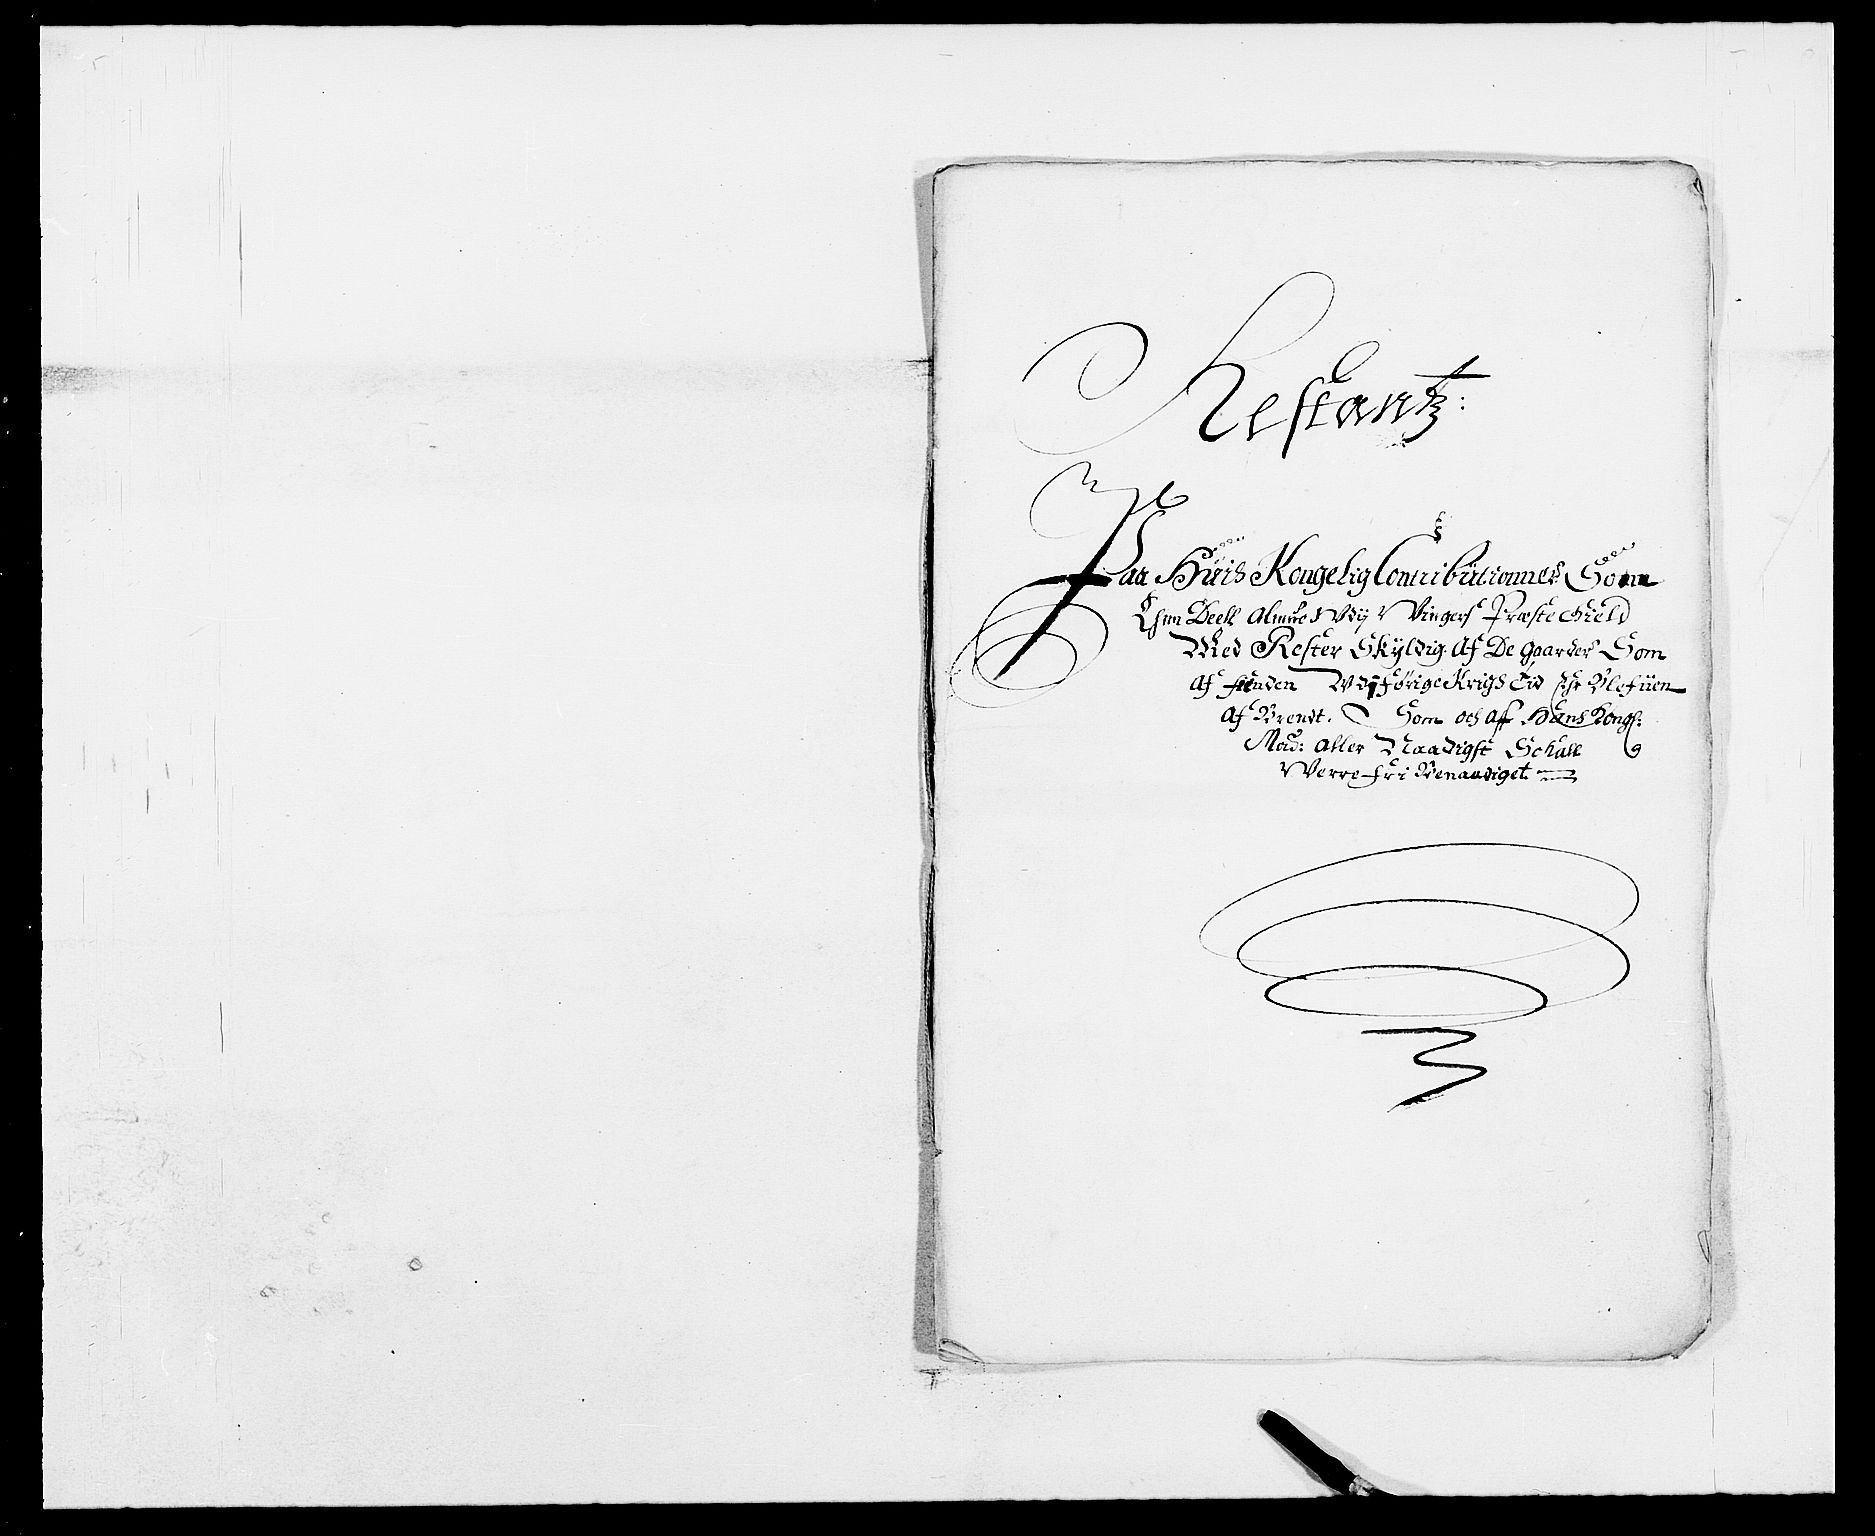 Restantz:
Paa Huis Kongelig Contributioner Som
Een Deell Almue Vdj Vingers Præste Gield
Med Rester Skyldig Af De Gaarder Som
Af fienden Vdj förige Krigs Tid Ehr Blefuen
Af Brendt. Som och aff Hans Kongl:
Maÿ: Aller Naadigst Schall
Verre Fri Benaadiget